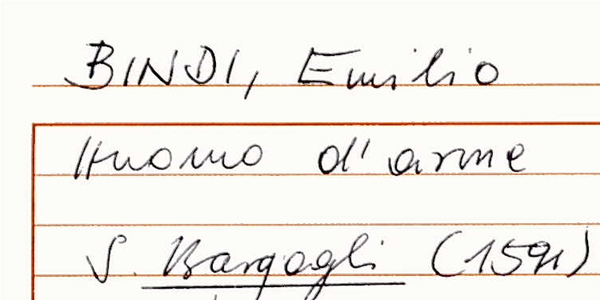 BINDI, Emilio
Huomo d'arme
S. Bargagli (1591)